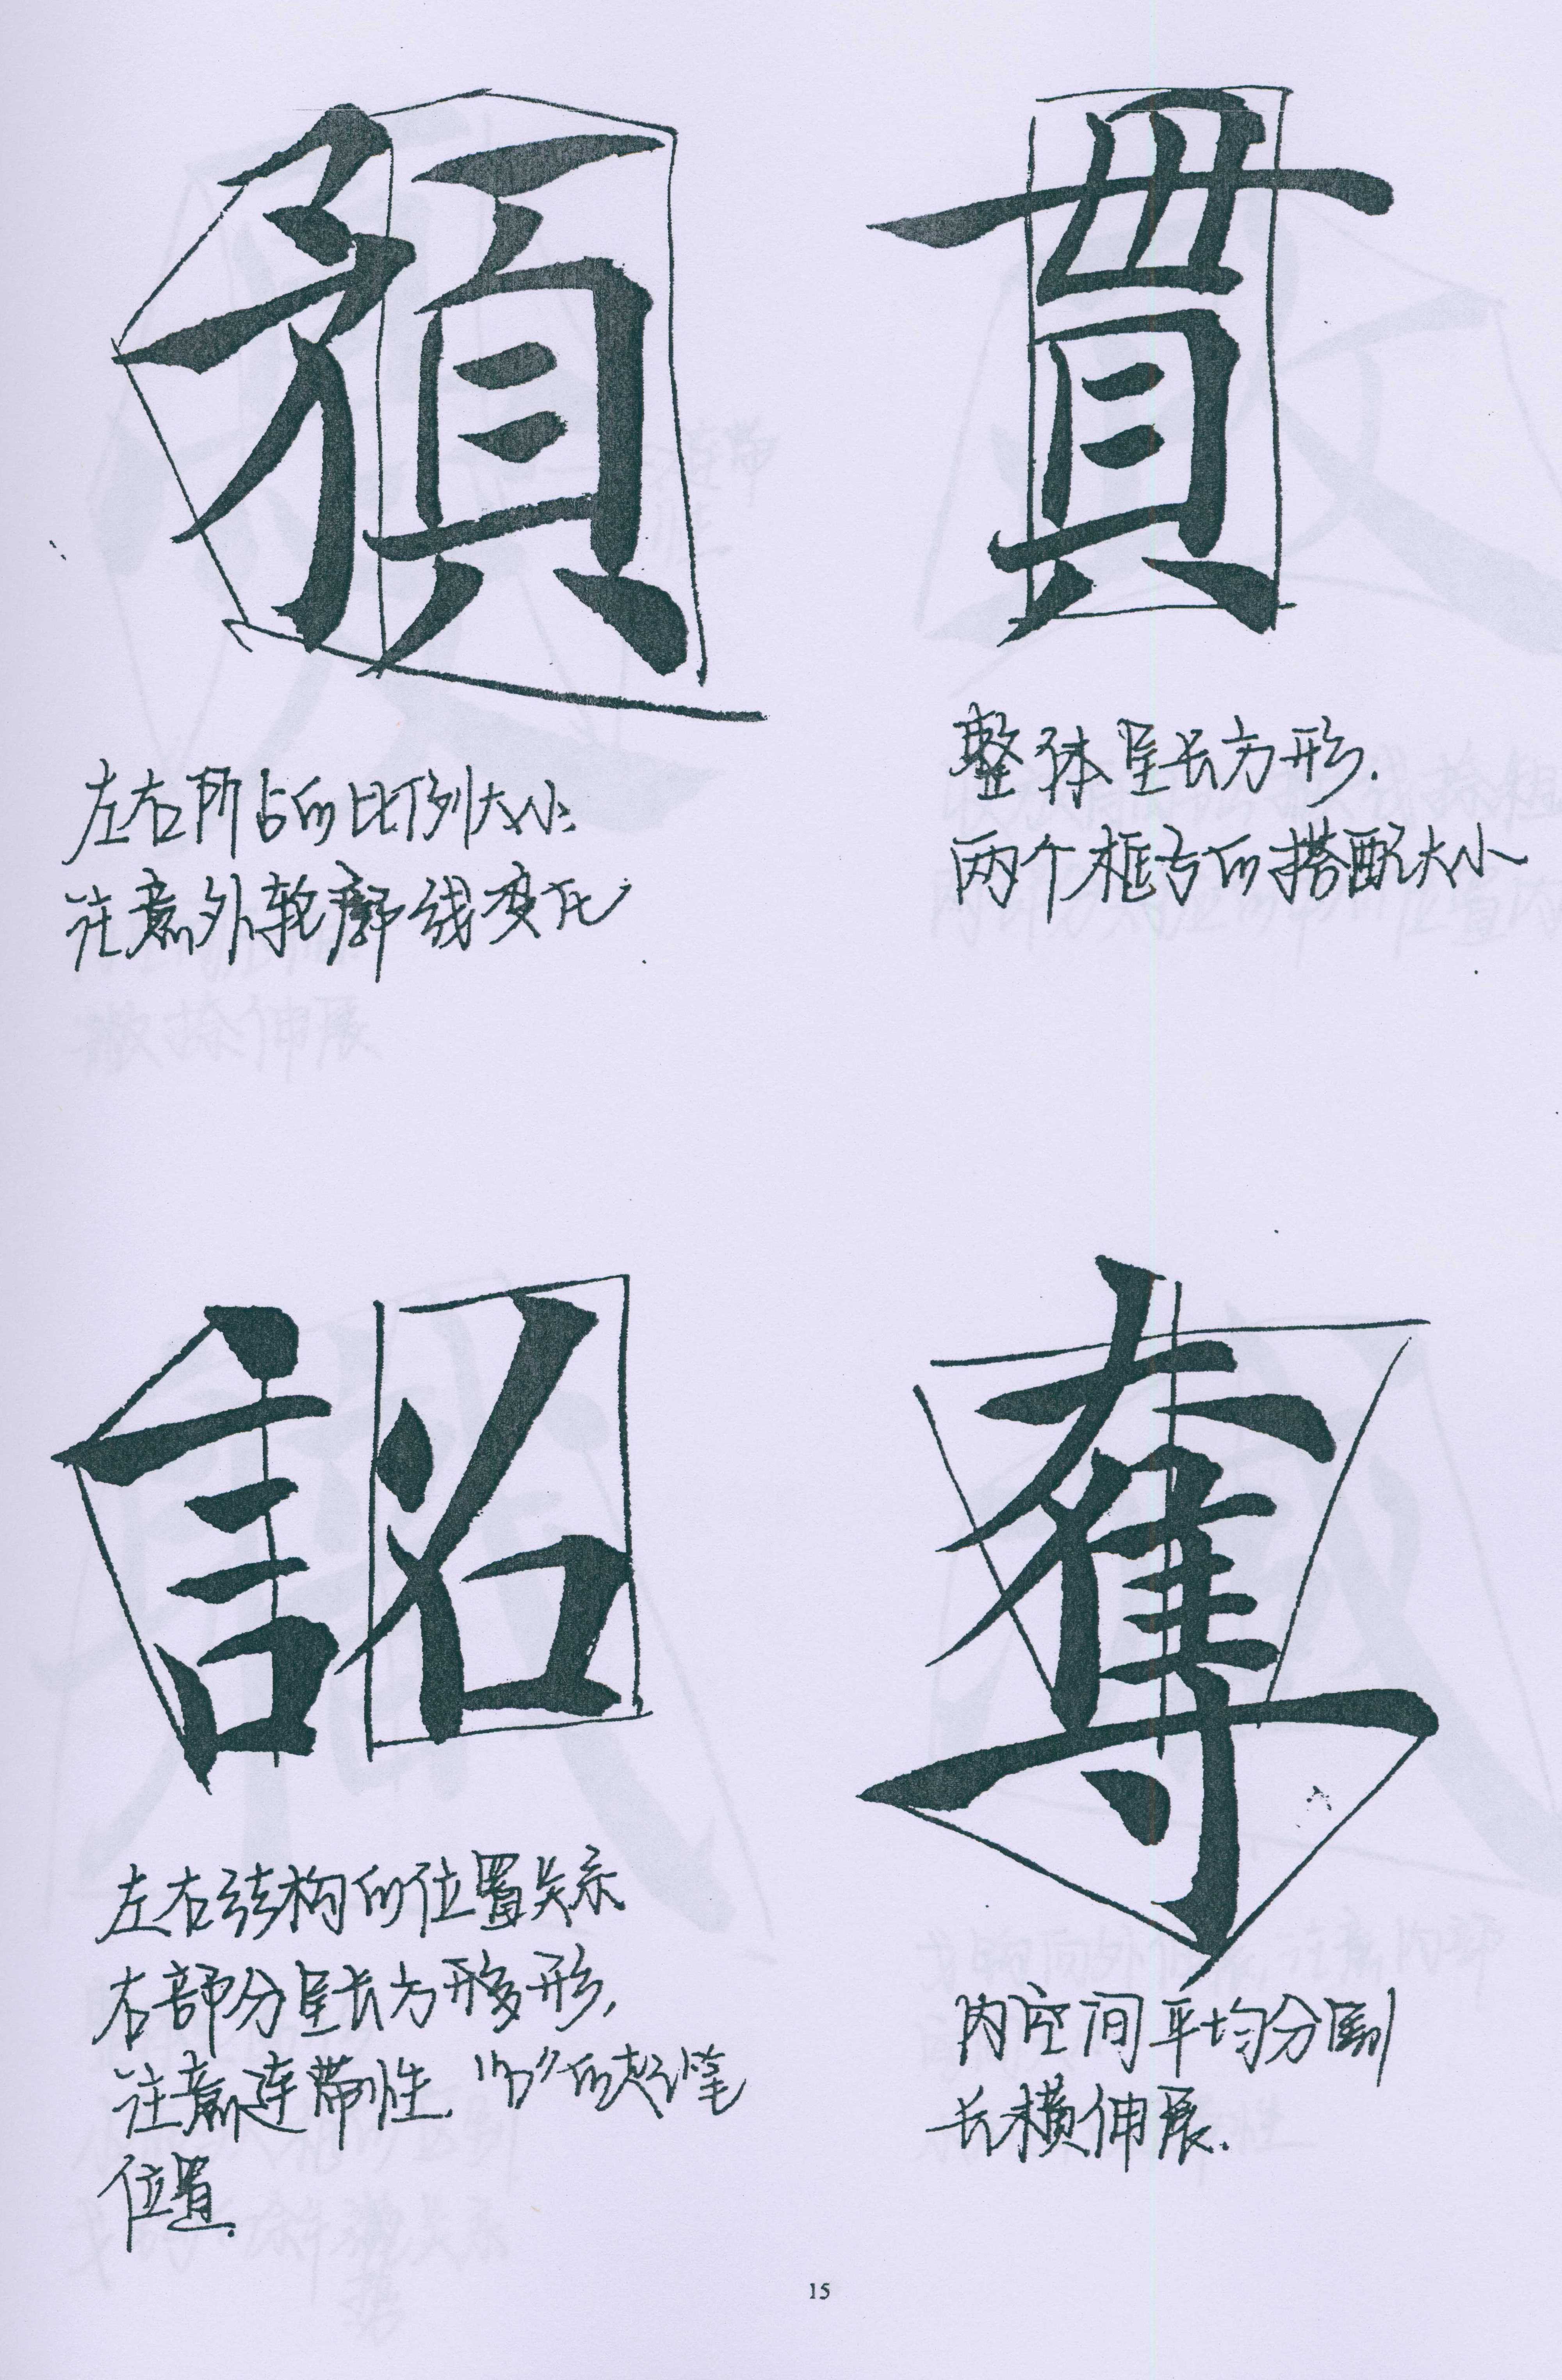 預
左右所占的比例大小.
注意外轮廓线变化
貫
整体呈长方形.
两个框与的搭配大小
詔
左右结构的位置关系
右部分呈长方形形,
注意连带性.
位置.
奪
内空间平均分割
长横伸展.
15